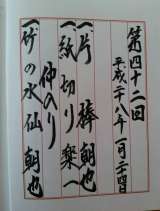 第四十二回
平成二十八年一月二十四日
一、片棒 朝也
一、紙切り 楽一
仲入り
一、砂の水仙 朝也